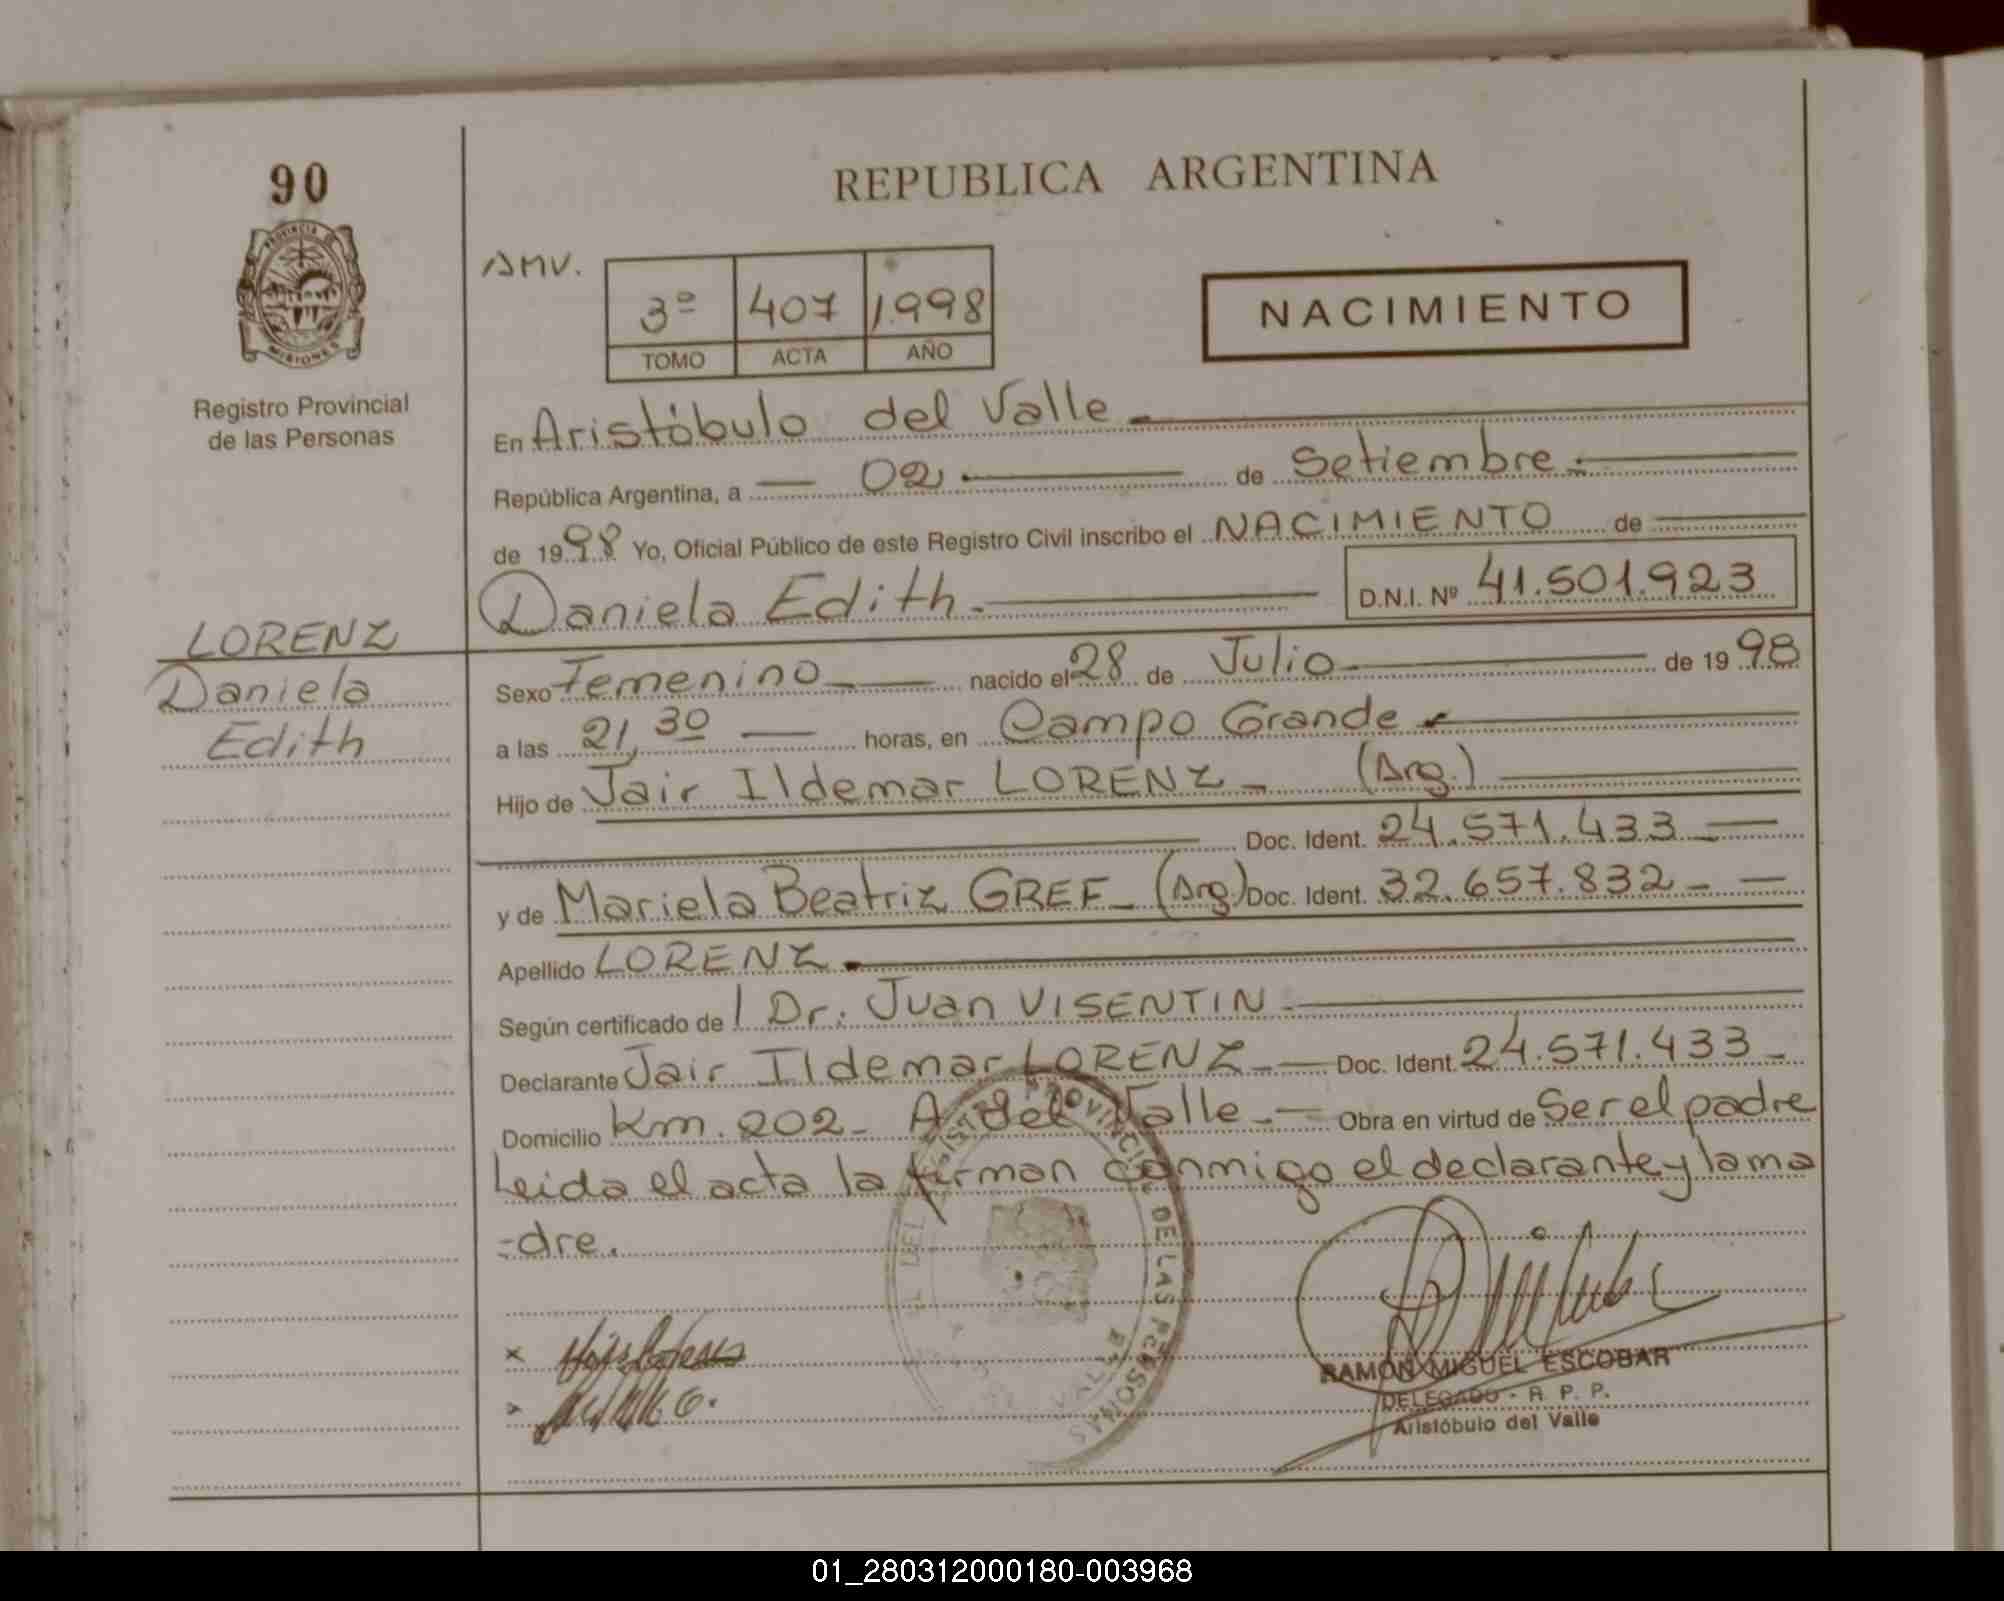 90
PROVINCIA DE
MISIONES
Registro Provincial
de las Personas
LORENZ
Daniela
Edith
REPUBLICA ARGENTINA
AMV.
3º 407 1.998
TOMO ACTA AÑO
NACIMIENTO
En Aristóbulo del Valle
República Argentina, a 02 de Setiembre
de 1998 Yo, Oficial Público de este Registro Civil inscribo el NACIMIENTO de
Daniela Edith D.N.I. Nº 41.501.923
Sexo Femenino nacido el 28 de Julio de 1998
a las 21,30 horas, en Campo Grande
Hijo de Jair Ildemar LORENZ (Arg.)
Doc. Ident. 24.571.433
y de Mariela Beatriz GREF (Arg.) Doc. Ident. 32.657.832
Apellido LORENZ
Según certificado de Dr. Juan VISENTIN
Declarante Jair Ildemar LORENZ Doc. Ident. 24.571.433
Domicilio Km. 202 - A. del Valle Obra en virtud de Ser el padre
Leida el acta la firman conmigo el declarante y la ma
-dre.
RAMON MIGUEL ESCOBAR
DELEGADO - R. P. P.
Aristóbulo del Valle
01_280312000180-003968